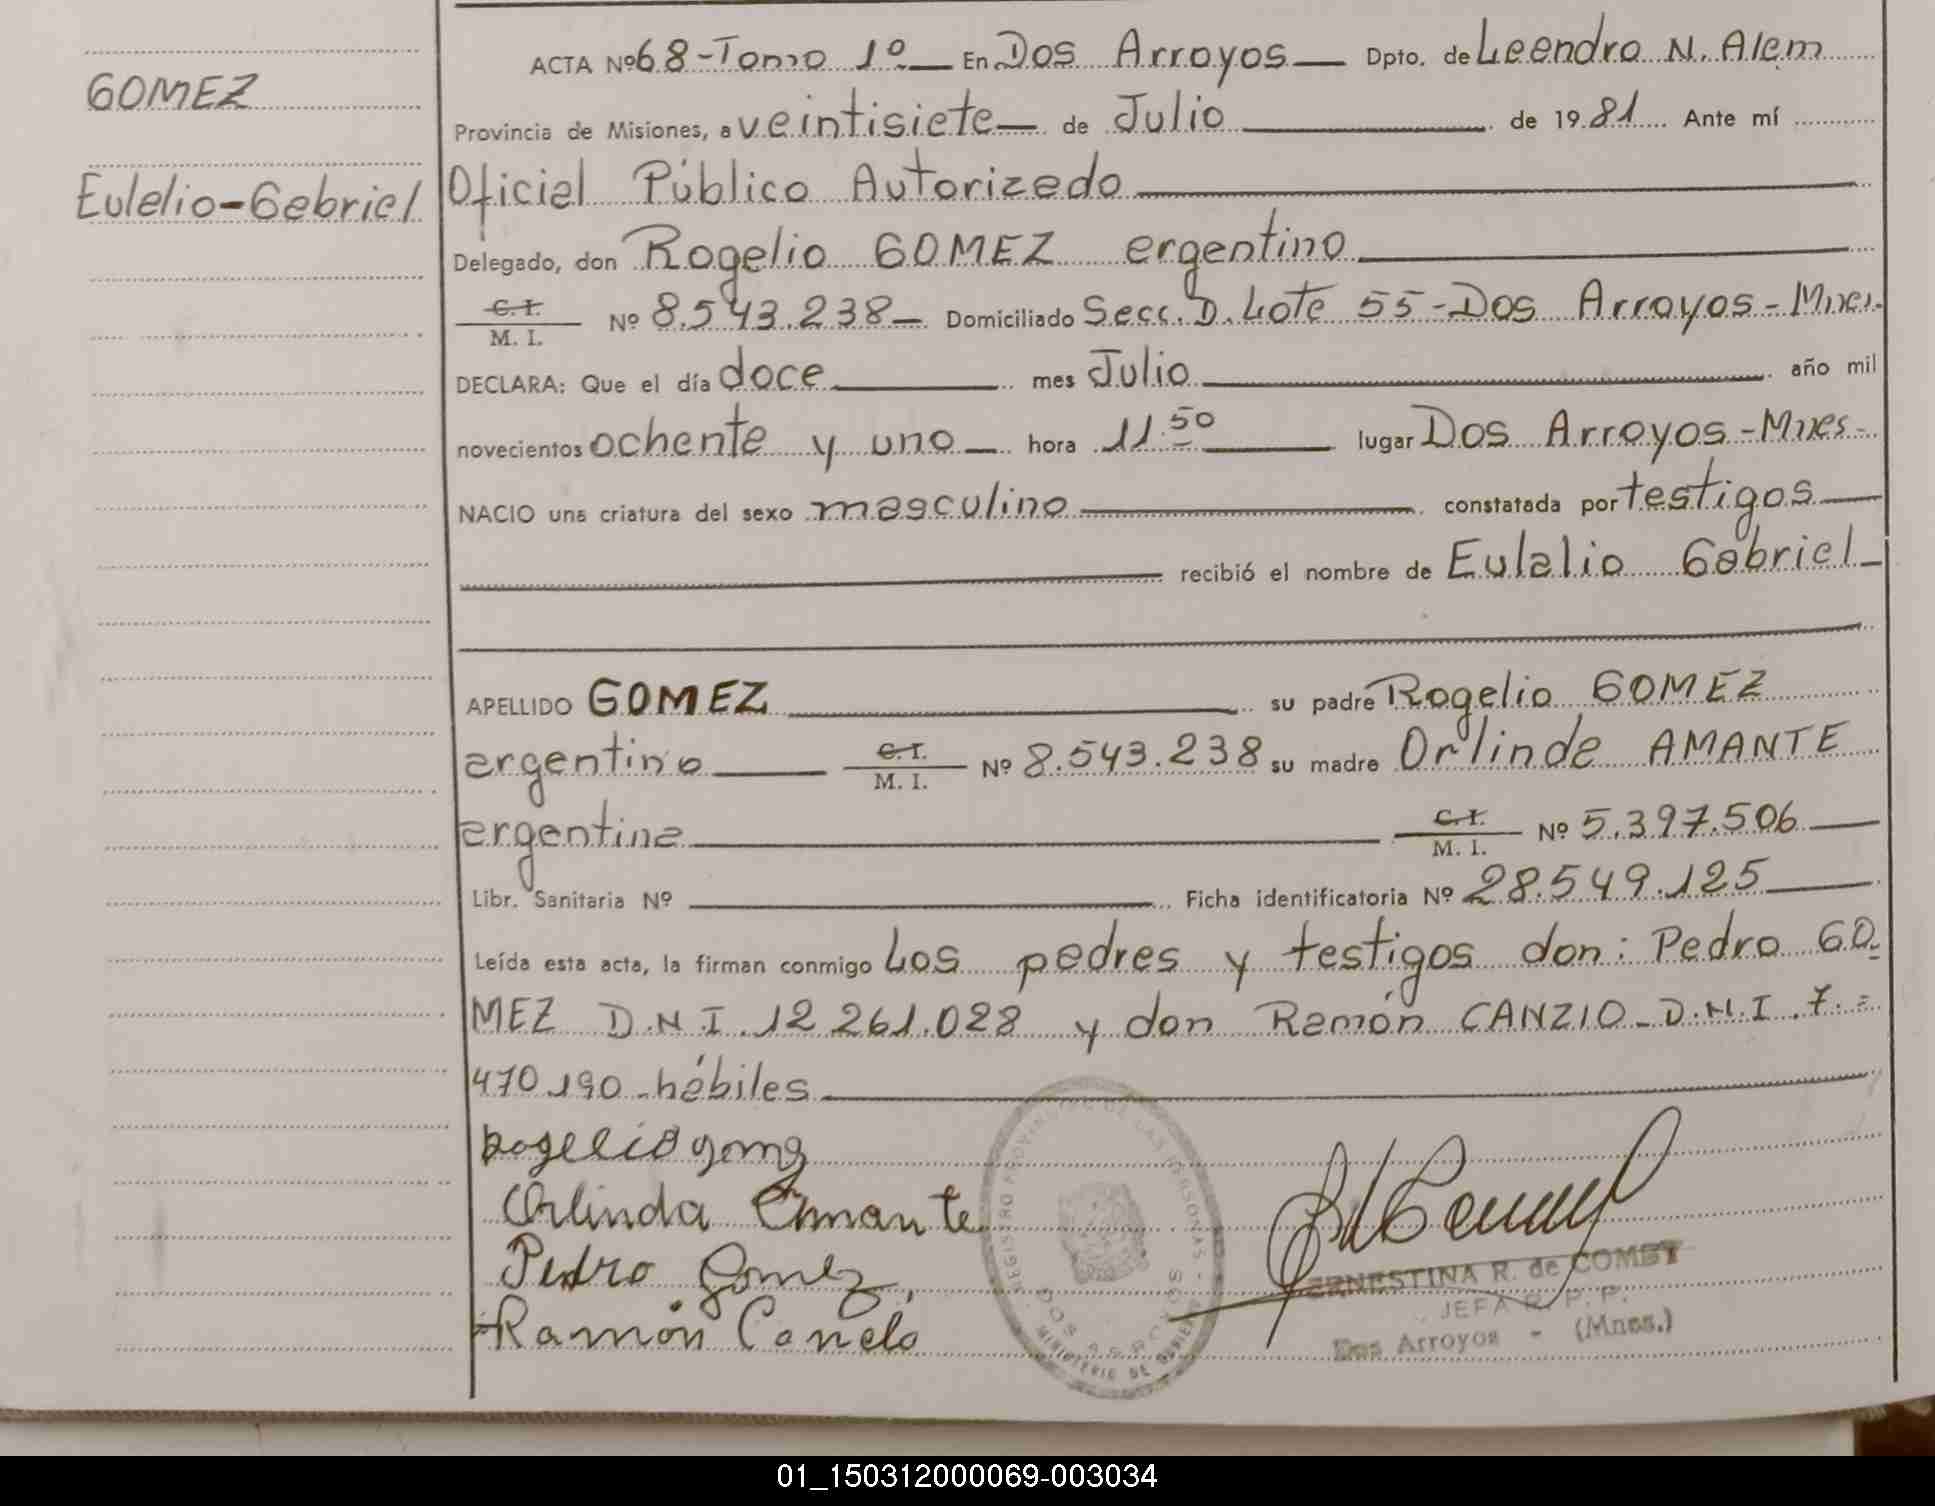 GOMEZ
Eulalio-Gabriel
ACTA Nº 68-Tomo 1º En Dos Arroyos Dpto. de Leandro N. Alem
Provincia de Misiones, a veintisiete de Julio de 1981 Ante mí
Oficial Público Autorizado
Delegado, don Rogelio GOMEZ argentino
C. I. / M. I. Nº 8.543.238 Domiciliado Secc. D. Lote 55-Dos Arroyos-Mnes.
DECLARA: Que el día doce mes Julio año mil
novecientos ochenta y uno hora 11.50 lugar Dos Arroyos-Mnes-
NACIO una criatura del sexo masculino constatada por testigos
recibió el nombre de Eulalio Gabriel
APELLIDO GOMEZ su padre Rogelio GOMEZ
argentino C. I. / M. I. Nº 8.543.238 su madre Orlinda AMANTE
argentina C. I. / M. I. Nº 5.397.506
Libr. Sanitaria Nº Ficha identificatoria Nº 28.549.125
Leída esta acta, la firman conmigo Los padres y testigos don: Pedro GO-
MEZ D.N.I. 12.261.028 y don Ramón CANZIO-D.N.I. 7.=
470.190-hábiles
Rogelio gomz
Orlinda Amante
Pedro Gomez,
Ramón Canclo
REGISTRO PROVINCIAL DE LAS PERSONAS
DOS ARROYOS
MINISTERIO DE GOBIERNO
ERNESTINA R. de COMEY
JEFA R. P. P.
Dos Arroyos - (Mnes.)
01_150312000069-003034